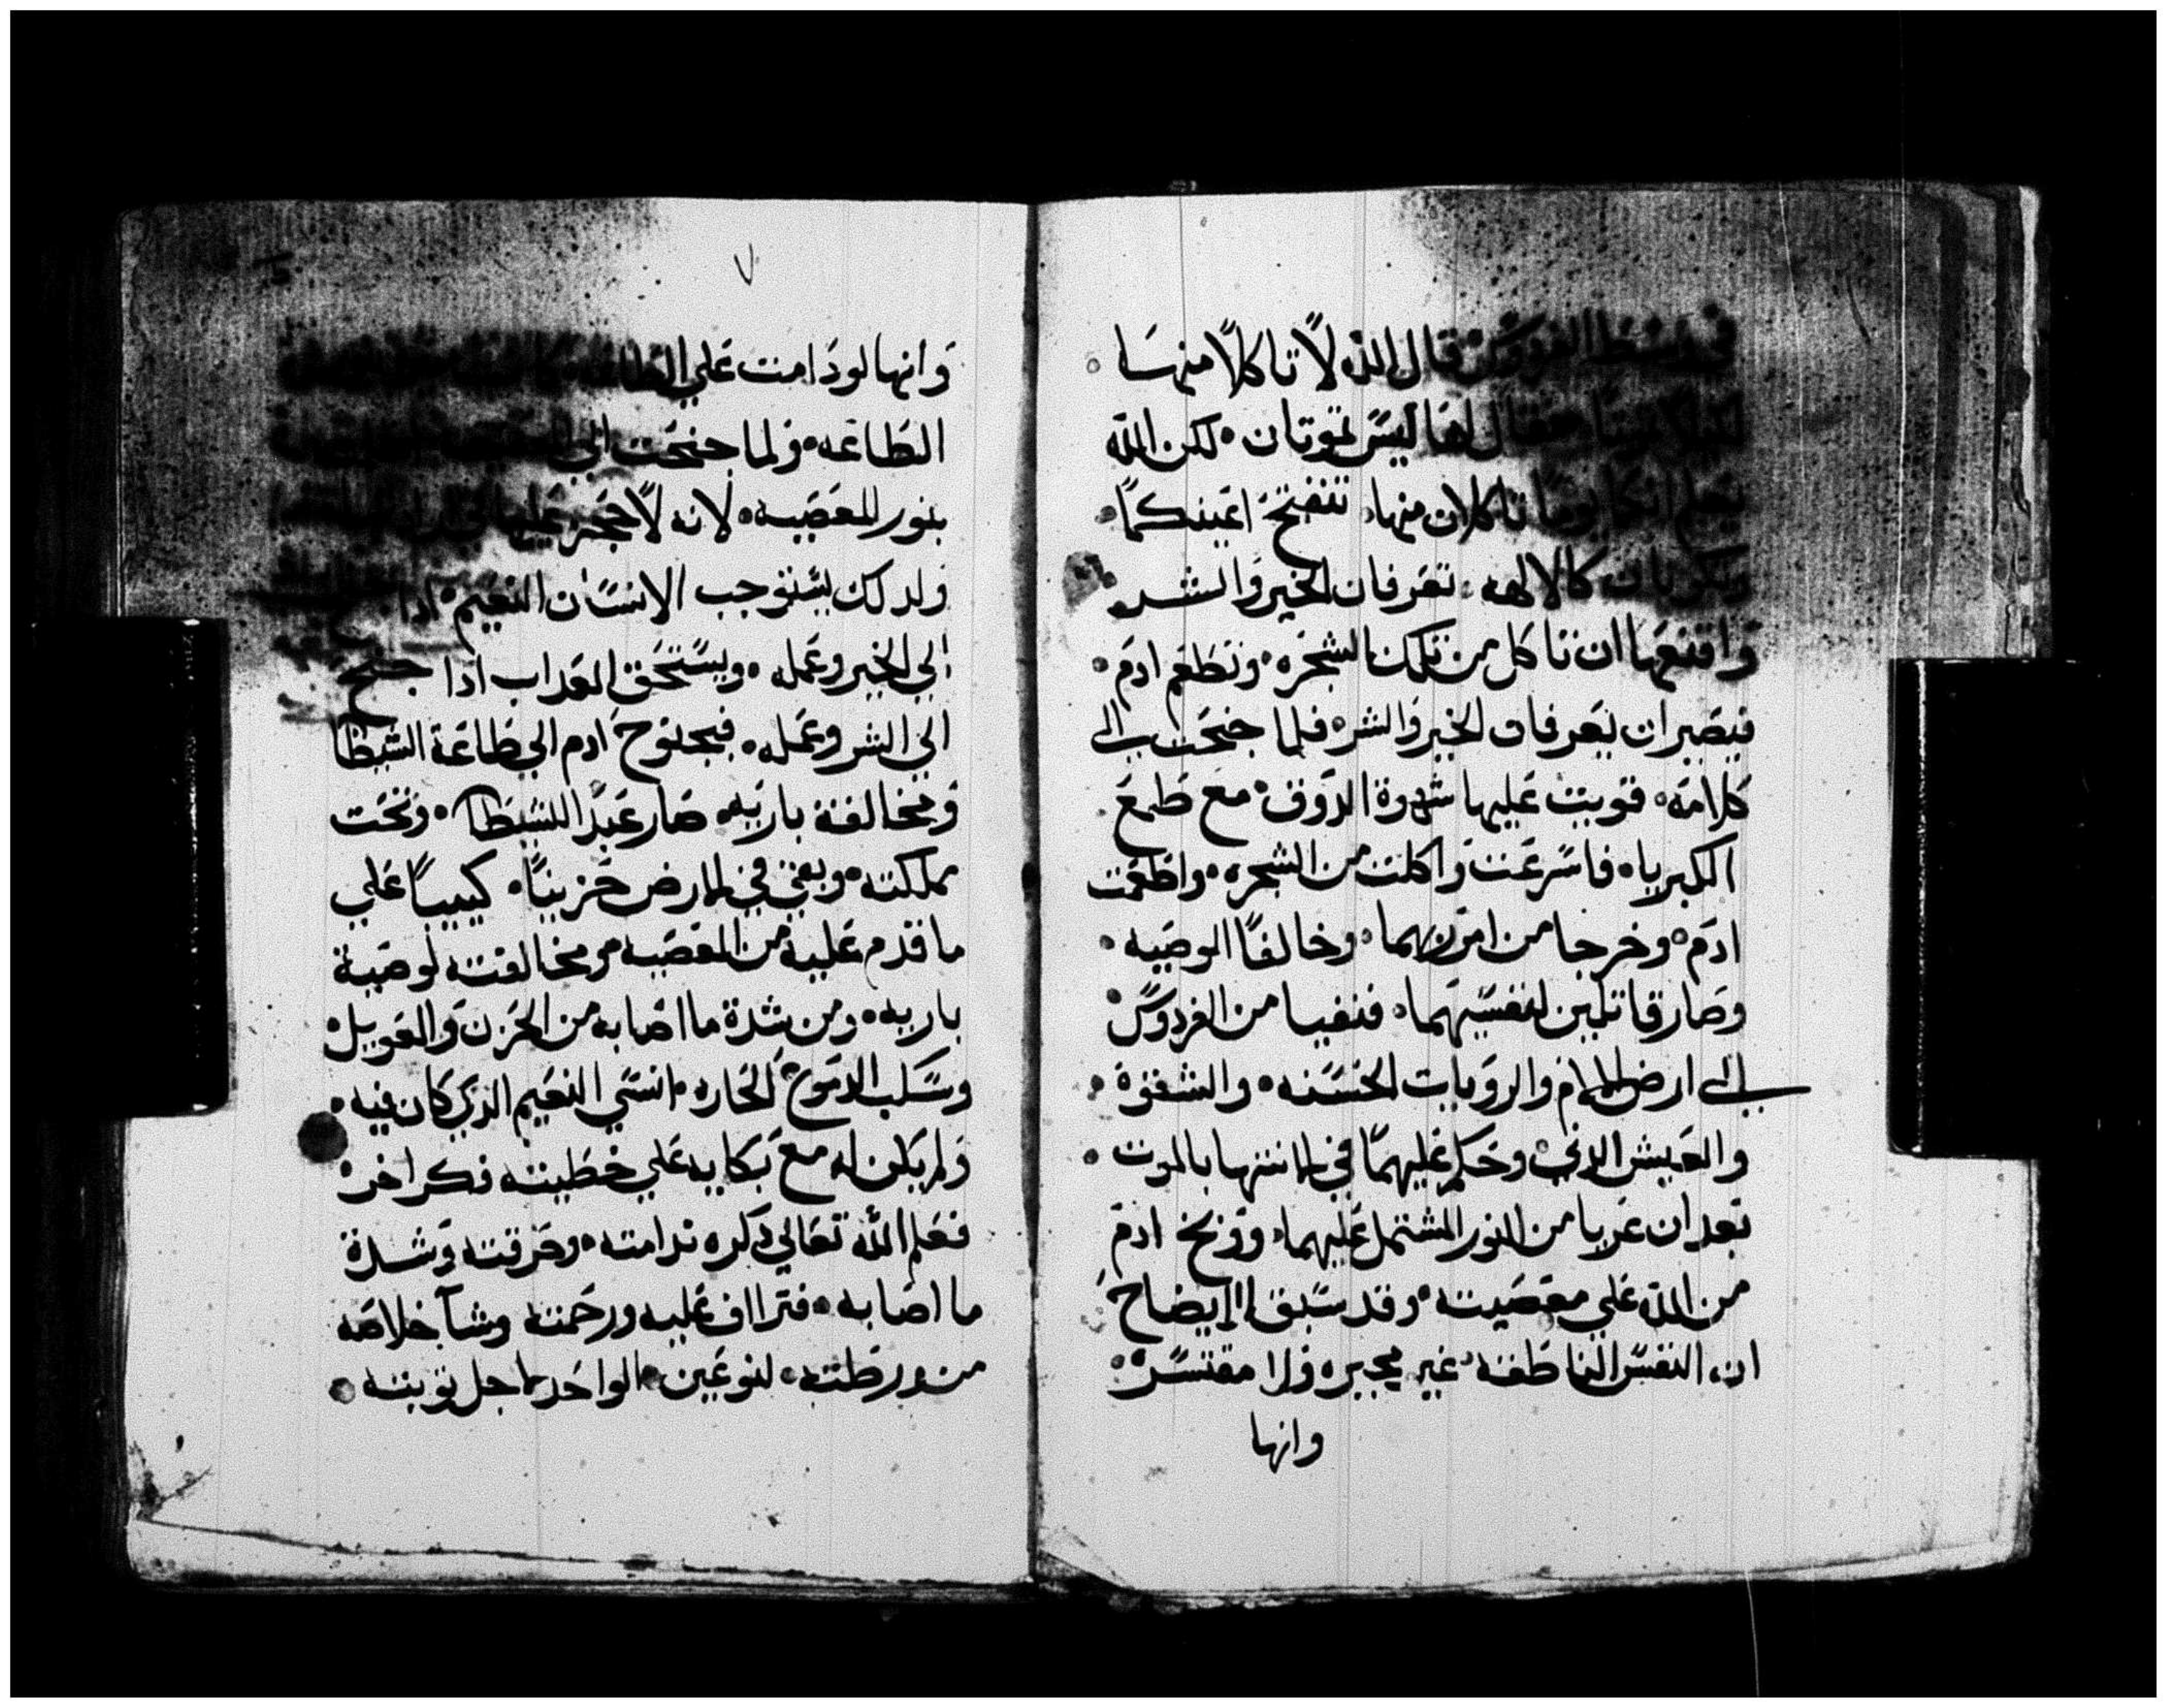 في وسط الفردوس قال الله لا تاكلا منها
لكيلا تموتا فقال لها ليس تموتان لكن الله
يعلم انكما يوما تاكلان منها تنفتح اعينكما
وتكونان كالالهه تعرفان الخير والشر
واقنعها ان تاكل من تلك الشجره وتطعم ادم
فيصيران يعرفان الخير والشر فلما جنحت الى
كلامه قويت عليها شهوة الدوق مع طمع
الكبرياه فاسرعت واكلت من الشجره واطعمت
ادم وخرجا من امر ربهما وخالفا الوصيه
وصارا قاتلين لنفسيهما فنفيا من الفردوس
الى ارض الالام والرويات الخسسنه والشقوة
والعيش الدني وحكم عليهما في الانتها بالموت
بعد ان عريا من النور المشتمل عليهما ووبخ ادم
من الله على معصيته وقد سبق الايضاح
ان النفس الناطقه غير مجبره ولا مقتسر
وانها
٧
وانها لو دامت علي الطاعه
الطاعه ولما جنحت الي
بنور المعصيه لانه لا حجر عليها في
ولدلك يستوجب الانسان النعيم ادا
الي الخير وعمله ويستحق العداب ادا جنح
الي الشر وعمله فبجنوح ادم الي طاعة الشيطا
ومخالفة باريه صار عبد الشيطان وتحت
مملكته وبقي في الارض حزينا كييبا علي
ما قدم عليه من المعصيه من مخالفته لوصية
باريه ومن شدة ما اصابه من الحزن والعويل
وسكب الدموع الحاره انسي النعيم الدي كان فيه
ولم يكن له مع بكايه علي خطيته فكر اخر
فعلم الله تعالي دكره ندامته وحرقته وشدة
ما اصابه فتراف عليه ورحمته وشآ خلاصه
من ورطته لنوعين الواحد لاجل توبته